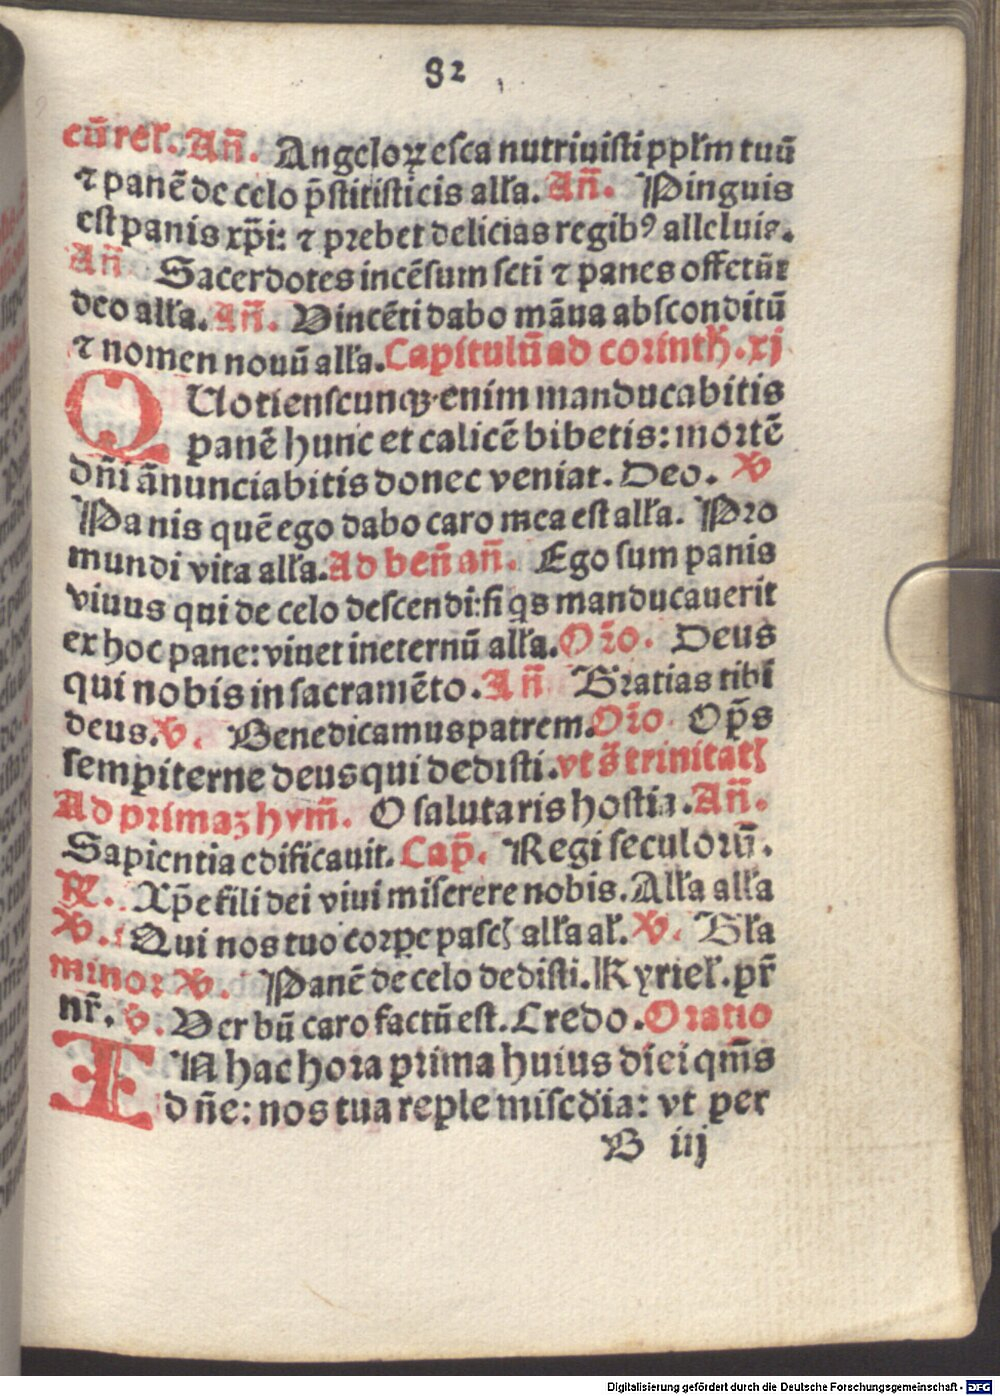 82
cū reł. Añ. Angeloꝝ esca nutriuisti ppłm tuū
⁊ panē de celo p̄stitisti eis ałła. Añ. Pinguis
est panis xp̄i: ⁊ prebet delicias regibꝰ alleluia.
Añ Sacerdotes incēsum scti ⁊ panes offerūt
deo ałła. Añ. Vincēti dabo māna absconditū
⁊ nomen nouū ałła. Capitulū ad corinth. xj
QUotienscunqꝫ enim manducabitis
panē hunc et calicē bibetis: mortē
dñi ānunciabitis donec veniat. Deo. ℣
Panis quē ego dabo caro mea est ałła. Pro
mundi vita ałła. Ad beñ añ. Ego sum panis
viuus qui de celo descendi: si qs manducauerit
ex hoc pane: viuet in eternū ałła. Oro. Deus
qui nobis in sacramēto. Añ Gratias tibi
deus. ℣. Benedicamus patrem. Oro Op̄s
sempiterne deus qui dedisti. vt s̄ trinitatꝭ
Ad primaꝫ hym̄. O salutaris hostia. Añ.
Sapientia edificauit. Cap̄. Regi seculorū.
℟. Xp̄e fili dei viui miserere nobis. Ałła ałła
℣. Qui nos tuo corpe pascꝭ ałła ał. ℣. Gła
minor ℣. Panē de celo dedisti. Kyrieł. pr̄
nr̄. ℣. Verbū caro factū est. Credo. Oratio
IN hac hora prima huius diei qm̄s
dñe: nos tua reple miscdia: vt per
B iij
Digitalisierung gefördert durch die Deutsche Forschungsgemeinschaft - DFG